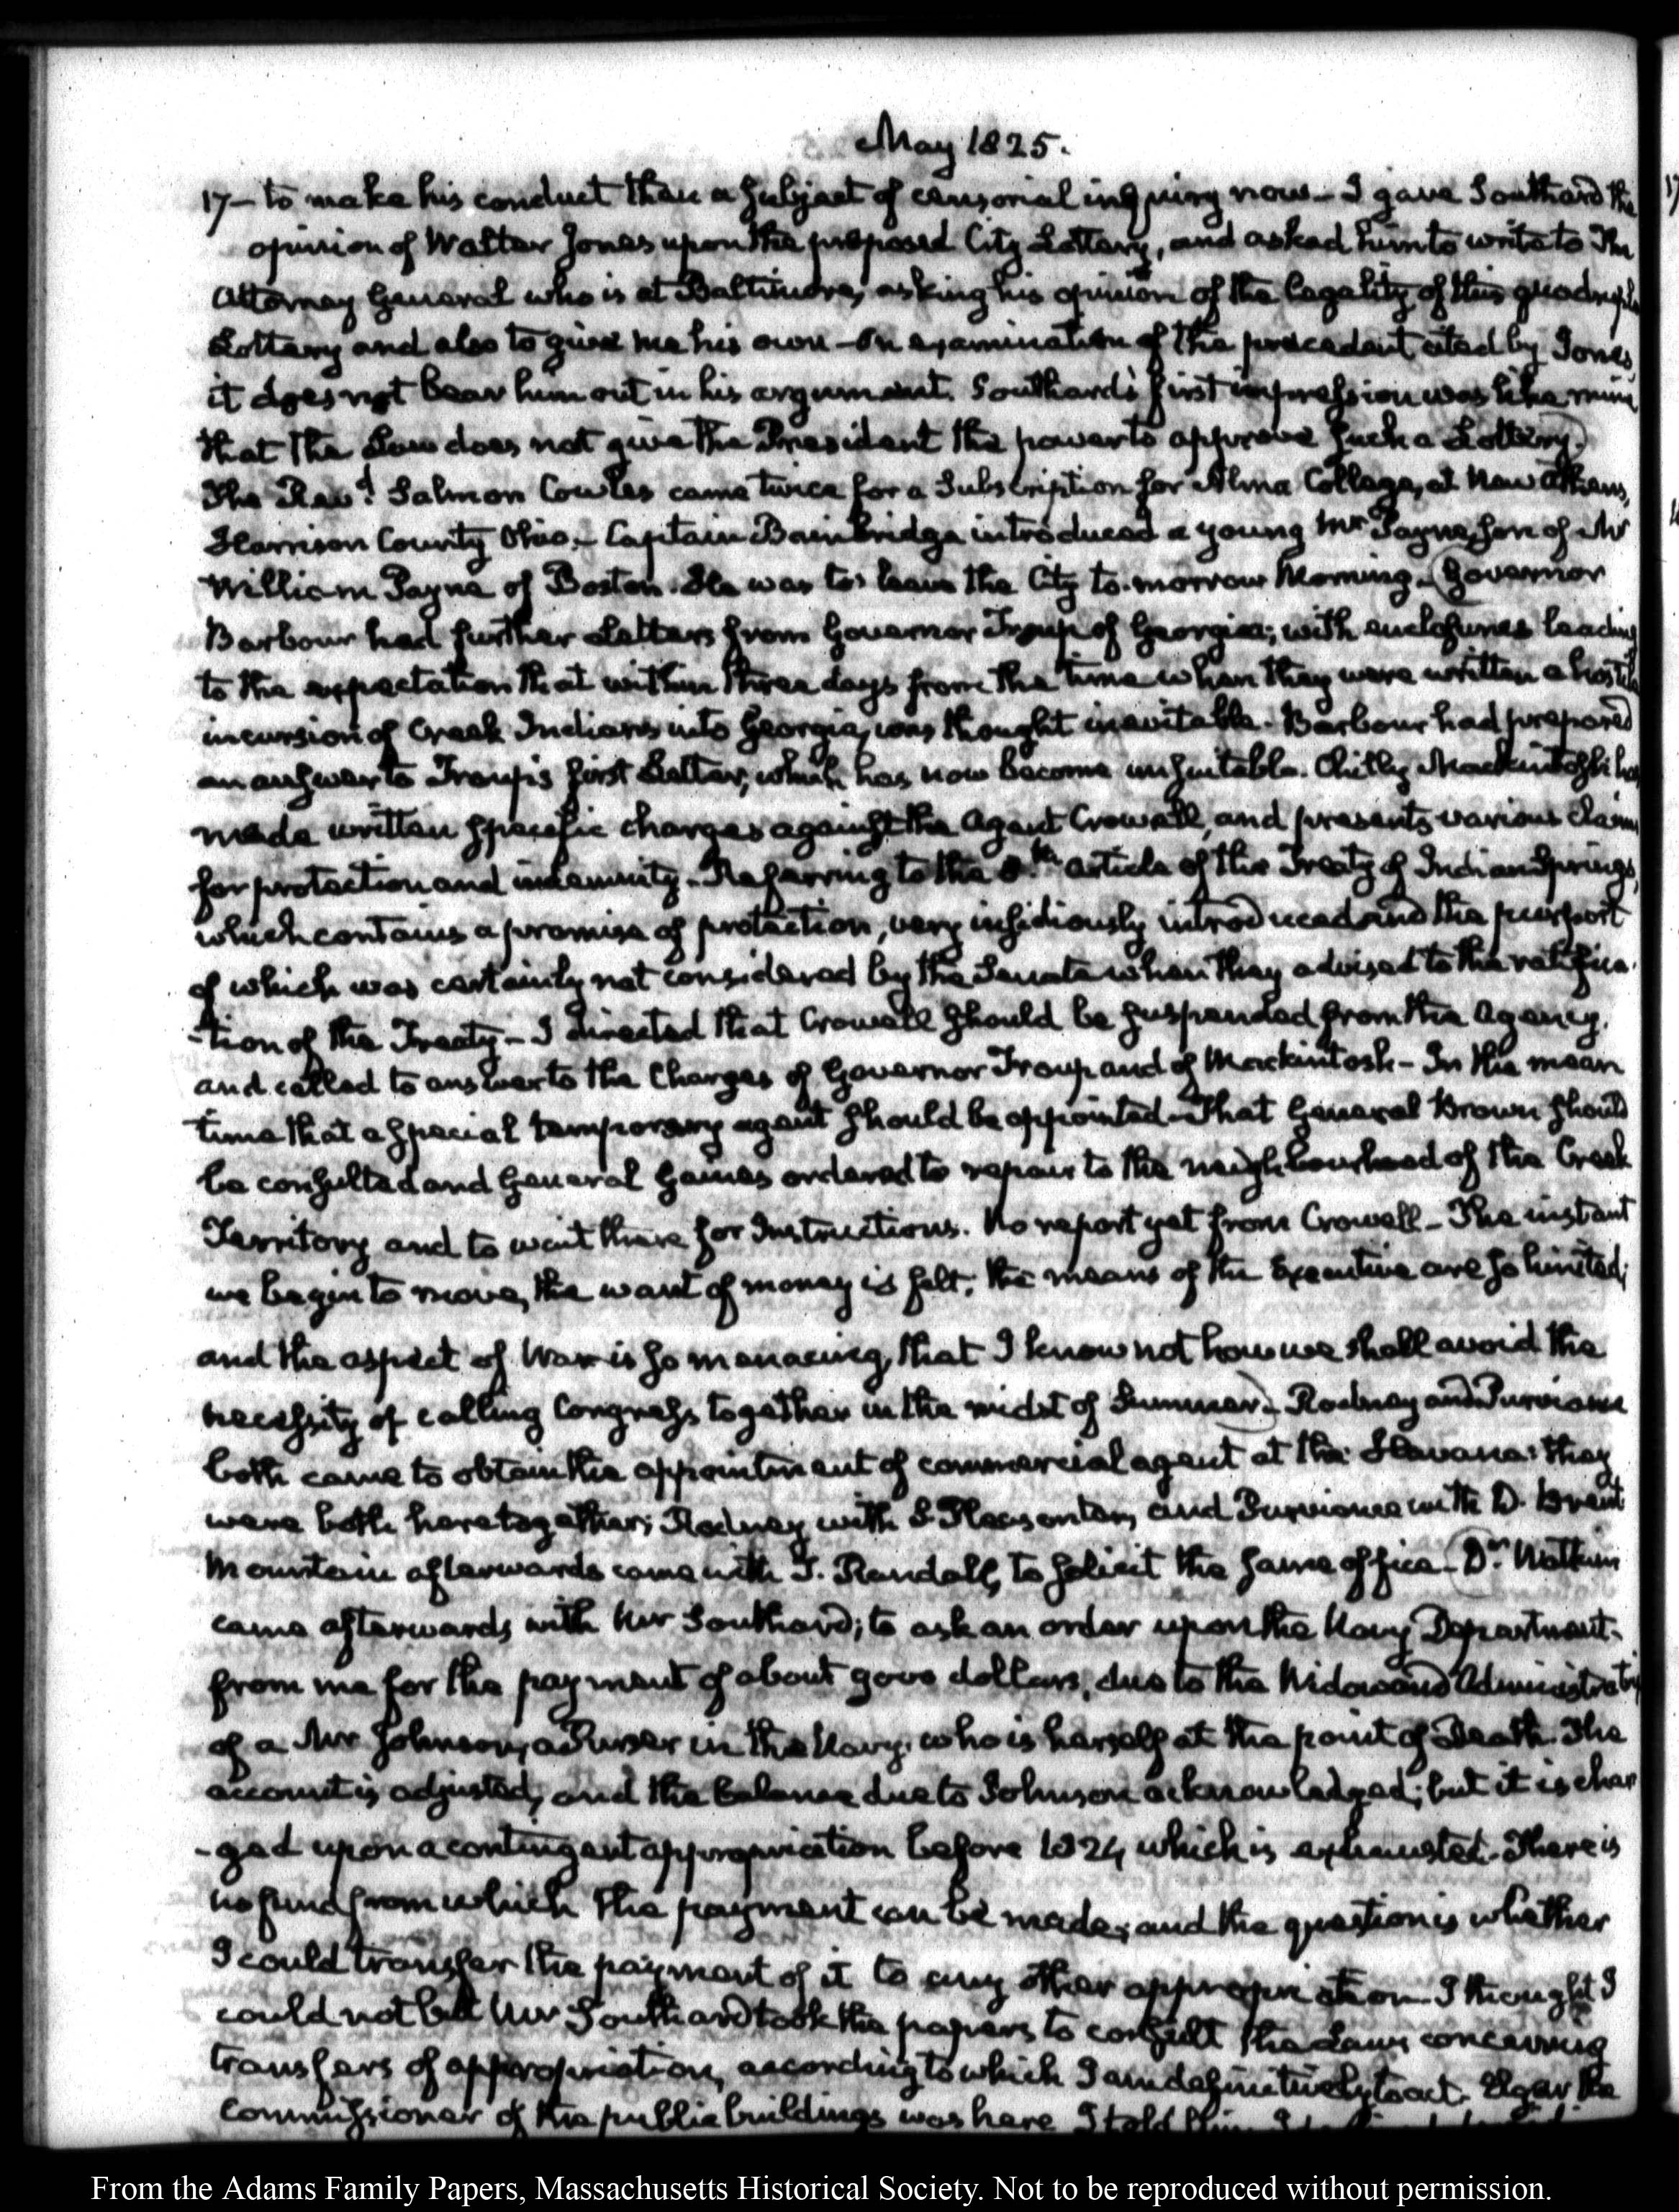 May 1825.
17– to make his conduct then a subject of censorial inquiry now – I gave Southard the
opinion of Walter Jones upon the proposed City Lottery, and asked him to write to the
Attorney General who is at Baltimore, asking his opinion of the legality of this quadruple
Lottery and also to give me his own – On examination of the precedent cited by Jones,
it does not bear him out in his argument. Southard's first impression was like mine
that the Law does not give the President the power to approve such a Lottery.)
The Revd. Salmon Cowles came twice for a Subscription for Alma College, at New Athens,
Harrison County Ohio. – Captain Bainbridge introduced a young Mr Payne, son of Mr
William Payne of Boston. He was to leave the City to-morrow Morning. (Governor
Barbour had further Letters from Governor Troup of Georgia; with enclosures leading
to the expectation that within three days from the time when they were written a hostile
incursion of Creek Indians into Georgia, was thought inevitable. Barbour had prepared
an answer to Troup's first Letter, which has now become unsuitable. Chilly Mackintosh has
made written specific charges against the Agent Crowell, and presents various claims
for protection and indemnity. Referring to the 8th. article of the Treaty of Indian Springs,
which contains a promise of protection, very insidiously introduced and the purport
of which was certainly not considered by the Senate when they advised to the ratifica-
-tion of the Treaty – I directed that Crowell should be suspended from the Agency,
and called to answer to the Charges of Governor Troup and of Mackintosh – In the mean
time that a special temporary agent should be appointed – That General Brown should
be consulted and General Gaines ordered to repair to the neighbourhood of the Creek
Territory and to wait there for Instructions. No report yet from Crowell – The instant
we begin to move, the want of money is felt; the means of the Executive are so limited;
and the aspect of War is so menacing, that I know not how we shall avoid the
necessity of calling Congress together in the midst of Summer.) – Rodney and Purviance
both came to obtain the appointment of commercial agent at the Havana: they
were both here together; Rodney with S. Pleasonton, and Purviance with D. Brent
Mountain afterwards came with T. Randall, to solicit the same office – (Dr. Watkins
came afterwards with Mr Southard; to ask an order upon the Navy Department
from me for the payment of about 9000 dollars, due to the Widow and Administratrix
of a Mr Johnson, a Purser in the Navy, who is herself at the point of Death. The
account is adjusted, and the balance due to Johnson acknowledged; but it is char
-ged upon a contingent appropriation before 1824 which is exhausted. There is
no fund from which the payment can be made; and the question is whether
I could transfer the payment of it to any other appropriation. I thought I
could not but Mr Southard took the papers to consult the Laws concerning
transfers of appropriation, according to which I am definitively to act. Elgar the
Commissioner of the public buildings was here I told him I
From the Adams Family Papers, Massachusetts Historical Society. Not to be reproduced without permission.